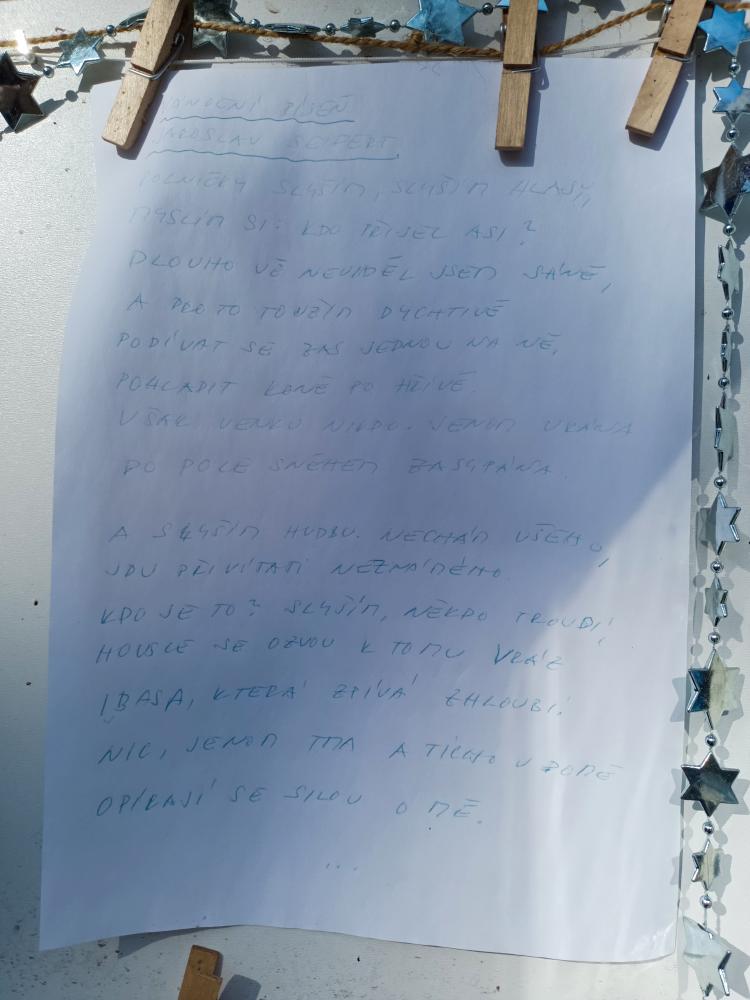 VÁNOČNÍ PÍSEŇ
JAROSLAV SEIFERT
ROLNIČKY SLYŠÍM, SLYŠÍM HLASY,
MYSLÍM SI: KDO PŘIJEL ASI?
DLOUHO UŽ NEVIDĚL JSEM SÁNĚ,
A PROTO TOUŽÍM DYCHTIVĚ
PODÍVAT SE ZAS JEDNOU NA NĚ,
POHLADIT KONĚ PO HŘÍVĚ.
VŠAK VENKU NIKDO. JENOM VRÁNA
DO POLE SNĚHEM ZASYPÁNA.
A SLYŠÍM HUDBU. NECHÁM VŠEHO,
JDU PŘIVÍTATI NEZNÁMÉHO.
KDO JE TO? SLYŠÍM, NĚKDO TROUBÍ,
HOUSLE SE OZVOU K TOMU VRÁZ
I BASA, KTERÁ ZPÍVÁ ZHLOUBI.
NIC, JENOM TMA A TICHO V ZEMĚ
OPÍRAJÍ SE SILOU O MĚ.
...